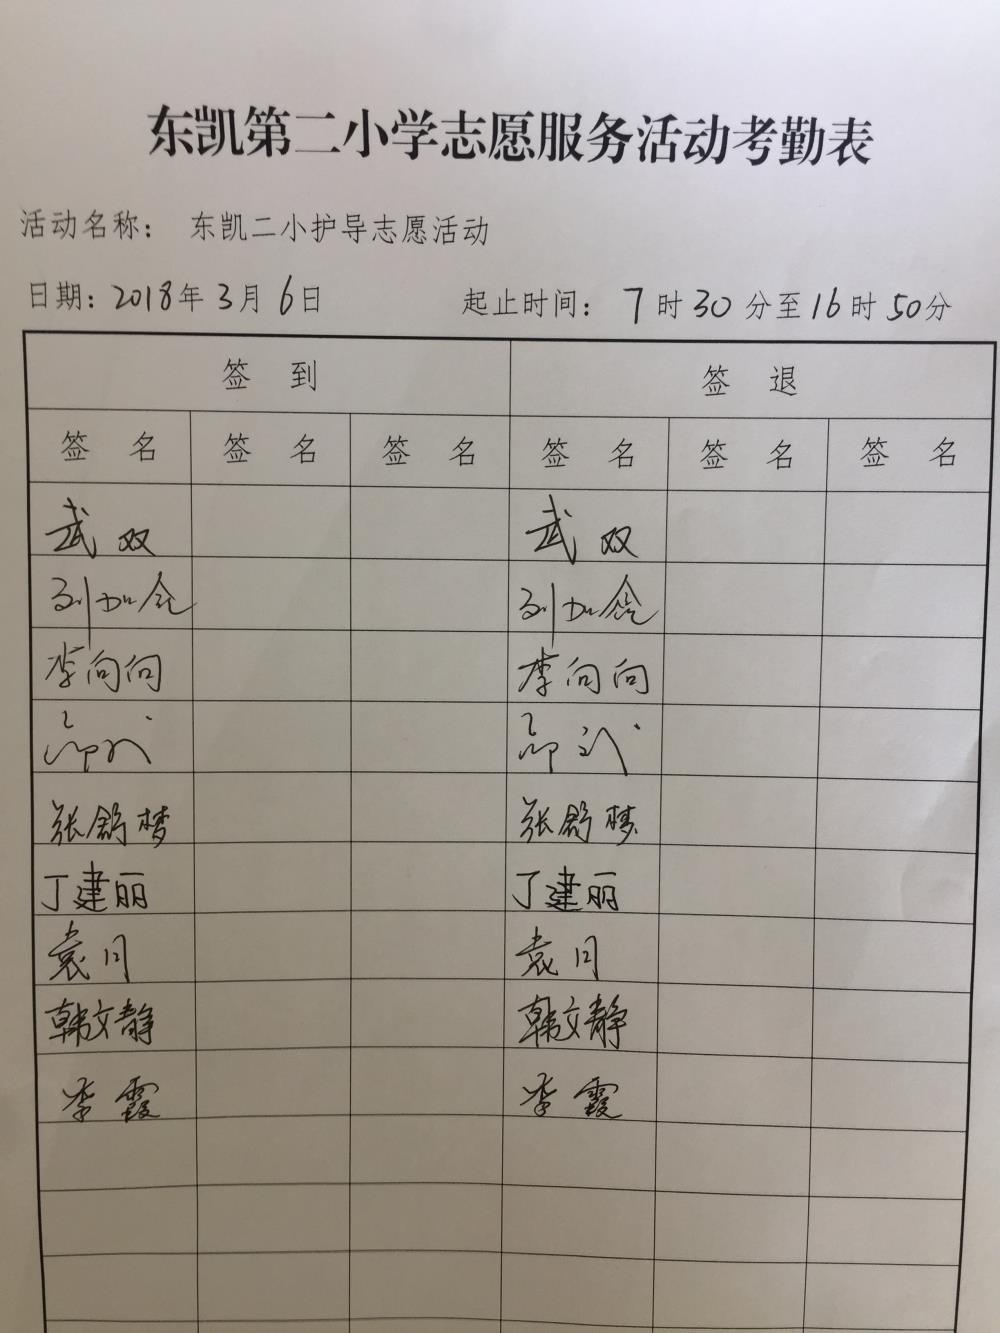 东凯第二小学志愿服务活动考勤表
活动名称： 东凯二小护导志愿活动
日期：2018年3月6日 起止时间：7时30分至16时50分
签 到 签 退
签 名 签 名 签 名 签 名 签 名 签 名
武双 武双
刘加 刘加
李向向 李向向
张舒梦 张舒梦
丁建丽 丁建丽
袁月 袁月
韩文静 韩文静
李霞 李霞